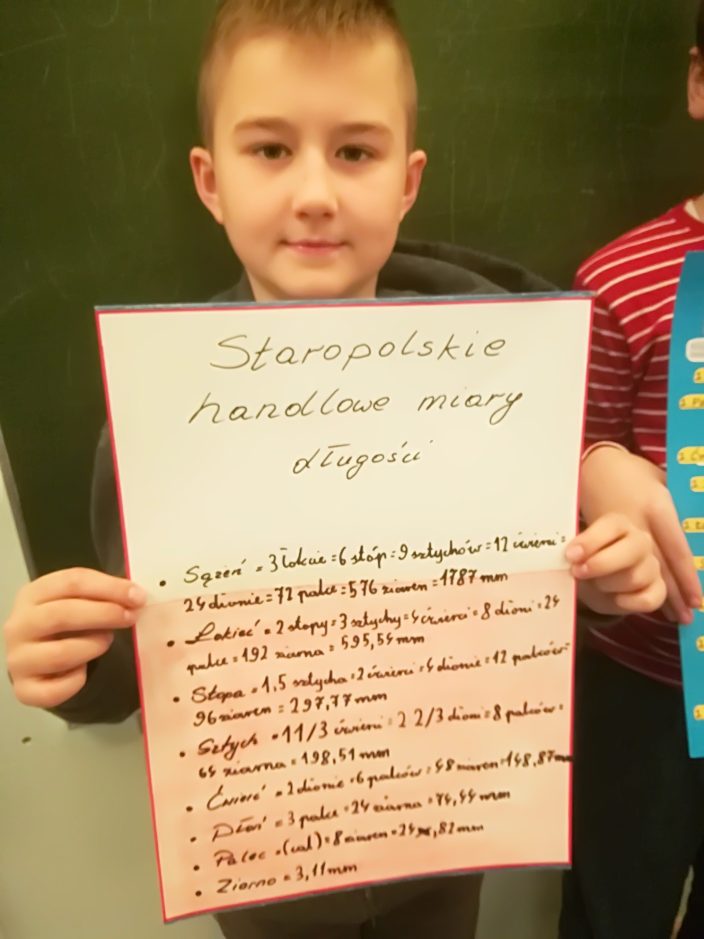 Staropolskie
handlowe miary
długości
• Sążeń = 3 łokcie = 6 stóp = 9 sztychów = 12 ćwierci =
24 dłonie = 72 palce = 576 ziaren = 1787 mm
• Łokieć = 2 stopy = 3 sztychy = 4 ćwierci = 8 dłoni = 24
palce = 192 ziarna = 595,54 mm
• Stopa = 1,5 sztycha = 2 ćwierci = 4 dłonie = 12 palców =
96 ziaren = 297,77 mm
• Sztych = 1 1/3 ćwierci = 2 2/3 dłoni = 8 palców =
64 ziarna = 198,51 mm
• Ćwierć = 2 dłonie = 6 palców = 48 ziaren = 148,87 mm
• Dłoń = 3 palce = 24 ziarna = 74,44 mm
• Palec = (cal) = 8 ziaren = 24,82 mm
• Ziarno = 3,11 mm